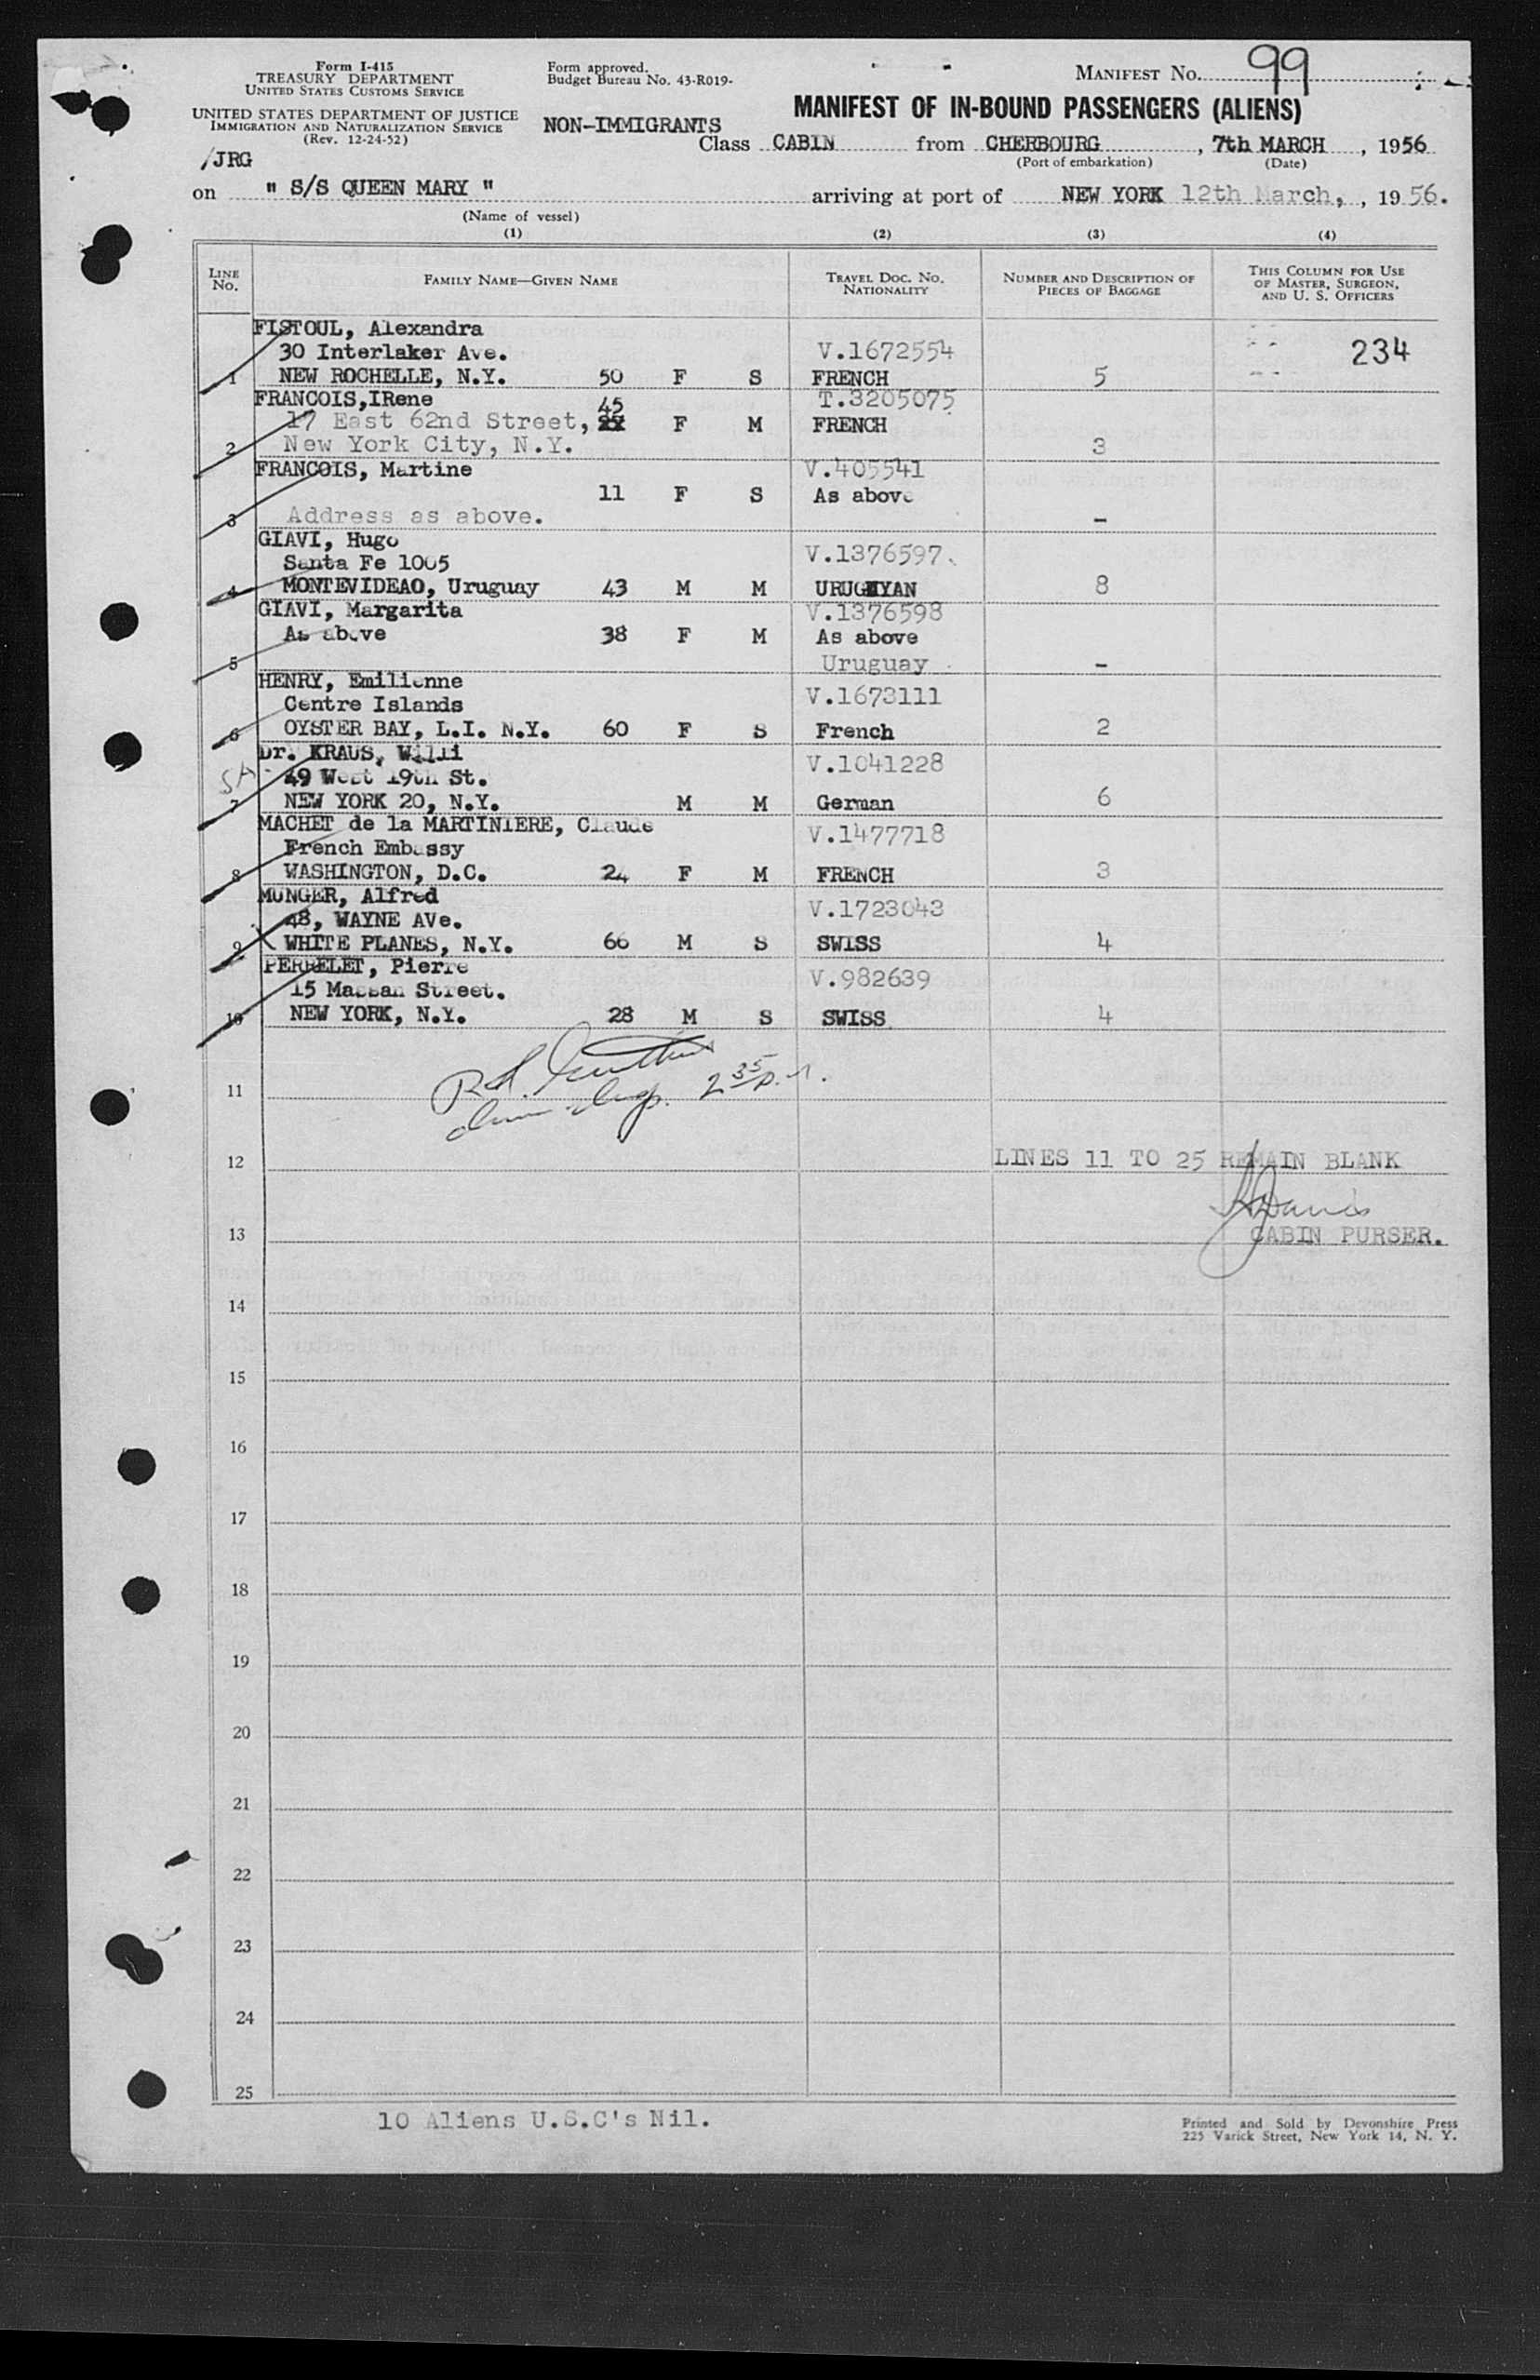 Form I-415
TREASURY DEPARTMENT
UNITED STATES CUSTOMS SERVICE
UNITED STATES DEPARTMENT OF JUSTICE
IMMIGRATION AND NATURALIZATION SERVICE
(Rev. 12-24-52)
/JRG
Form approved.
Budget Bureau No. 43-R019-
MANIFEST No. 99
MANIFEST OF IN-BOUND PASSENGERS (ALIENS)
NON-IMMIGRANTS
Class CABIN from CHERBOURG, 7th MARCH, 1956
(Port of embarkation) (Date)
on " S/S QUEEN MARY " arriving at port of NEW YORK 12th March, , 19 56.
(Name of vessel)
(1) (2) (3) (4)
LINE No. FAMILY NAME—GIVEN NAME TRAVEL DOC. NO. NATIONALITY NUMBER AND DESCRIPTION OF PIECES OF BAGGAGE THIS COLUMN FOR USE OF MASTER, SURGEON, AND U. S. OFFICERS
FISTOUL, Alexandra
30 Interlaker Ave. V.1672554 234
1 NEW ROCHELLE, N.Y. 50 F S FRENCH 5
FRANCOIS,IRene 45 T.3205075
17 East 62nd Street, F M FRENCH
2 New York City, N.Y. 3
FRANCOIS, Martine V.405541
11 F S As above
3 Address as above. -
GIAVI, Hugo
Santa Fe 1005 V.1376597.
4 MONTEVIDEAO, Uruguay 43 M M URUGUYAN 8
GIAVI, Margarita V.1376598
As above 38 F M As above
5 Uruguay -
HENRY, Emilienne
Centre Islands V.1673111
6 OYSTER BAY, L.I. N.Y. 60 F S French 2
Dr. KRAUS, Willi
SA 49 West 19th St. V.1041228
7 NEW YORK 20, N.Y. M M German 6
MACHET de la MARTINIERE, Claude
French Embassy V.1477718
8 WASHINGTON, D.C. 24 F M FRENCH 3
MUNGER, Alfred
48, WAYNE AVe. V.1723043
9 WHITE PLANES, N.Y. 66 M S SWISS 4
PERRELET, Pierre
15 Massan Street. V.982639
10 NEW YORK, N.Y. 28 M S SWISS 4
11
2 35 p.m.
12 LINES 11 TO 25 REMAIN BLANK
Davis
13 CABIN PURSER.
14
15
16
17
18
19
20
21
22
23
24
25
10 Aliens U.S.C's Nil.
Printed and Sold by Devonshire Press
225 Varick Street, New York 14, N. Y.